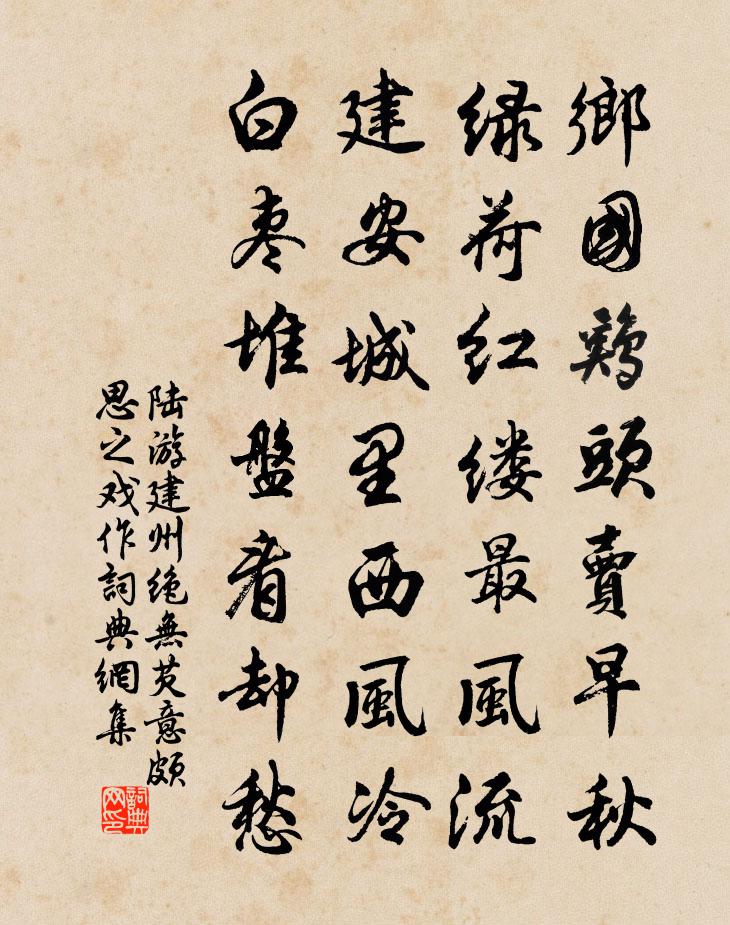 鄉國鷄頭賣早秋
绿荷红缕最風流
建安城里西風冷
白枣堆盤看却愁
陆游建州绝無芡意頗
思之戏作詞典網集
詞典
网印